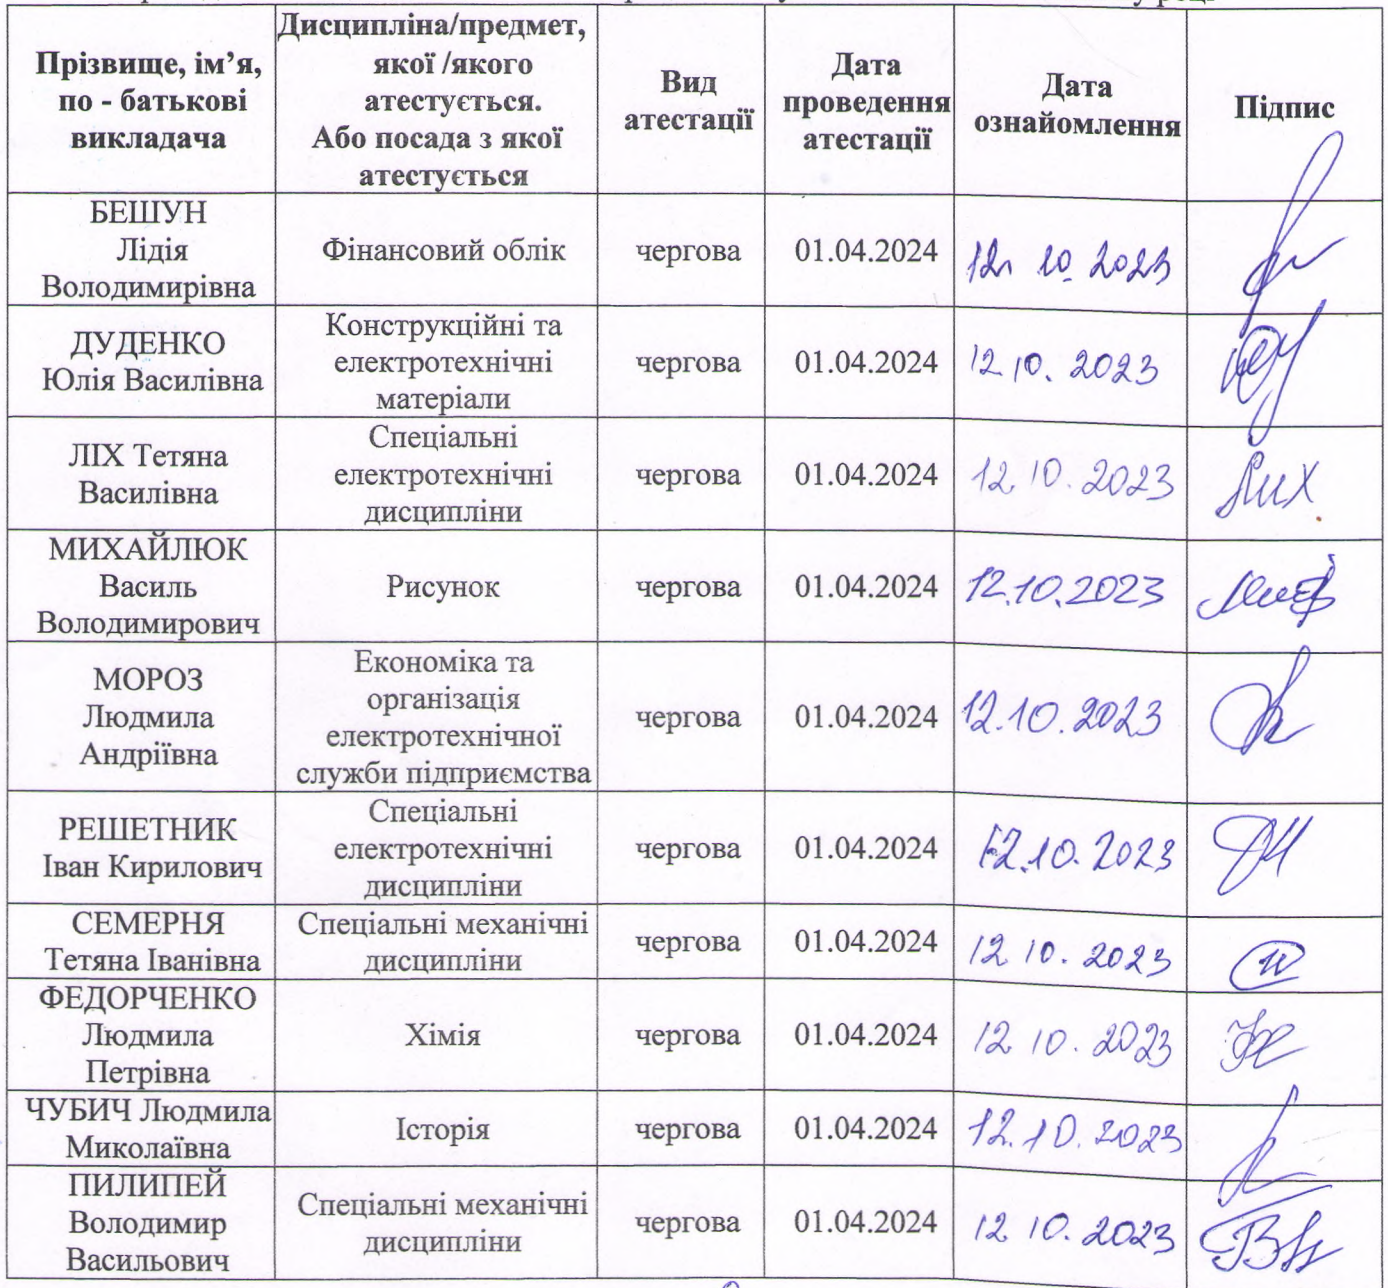 Прізвище, ім’я,
по - батькові
викладача
Дисципліна/предмет,
якої /якого
атестується.
Або посада з якої
атестується
Вид
атестації
Дата
проведення
атестації
Дата
ознайомлення
Підпис
БЕШУН
Лідія
Володимирівна
Фінансовий облік
чергова
01.04.2024
12 10.2023
ДУДЕНКО
Юлія Василівна
Конструкційні та
електротехнічні
матеріали
чергова
01.04.2024
12 10. 2023
ЛІХ Тетяна
Василівна
Спеціальні
електротехнічні
дисципліни
чергова
01.04.2024
12.10.2023
Лих
МИХАЙЛЮК
Василь
Володимирович
Рисунок
чергова
01.04.2024
12.10.2023
МОРОЗ
Людмила
Андріївна
Економіка та
організація
електротехнічної
служби підприємства
чергова
01.04.2024
12.10.2023
РЕШЕТНИК
Іван Кирилович
Спеціальні
електротехнічні
дисципліни
чергова
01.04.2024
12.10.2023
СЕМЕРНЯ
Тетяна Іванівна
Спеціальні механічні
дисципліни
чергова
01.04.2024
12 10. 2023
ФЕДОРЧЕНКО
Людмила
Петрівна
Хімія
чергова
01.04.2024
12 10. 2023
ЧУБИЧ Людмила
Миколаївна
Історія
чергова
01.04.2024
12.10.2023
ПИЛИПЕЙ
Володимир
Васильович
Спеціальні механічні
дисципліни
чергова
01.04.2024
12 10. 2023